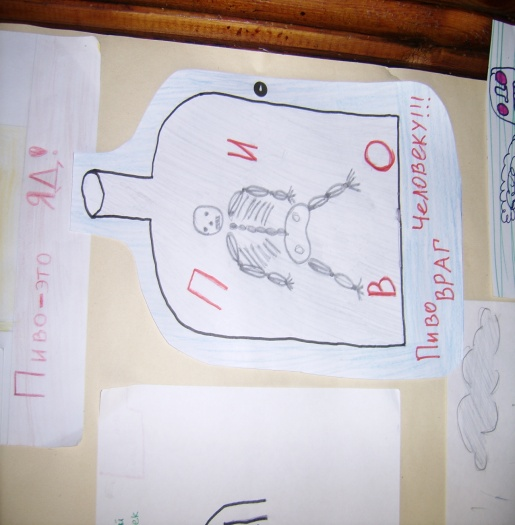 Пиво-это ЯД!
П И
В О
Пиво ВРАГ Человеку!!!